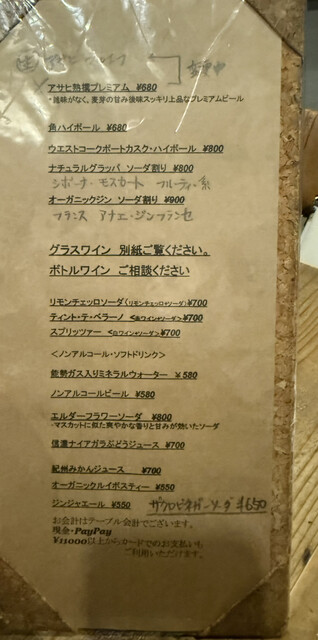 アサヒ熟撰プレミアム ¥680
・雑味がなく、麦芽の甘み後味スッキリ上品なプレミアムビール
角ハイボール ¥680
ウエストコークポートカスク・ハイボール ¥800
ナチュラルグラッパ ソーダ割り ¥800
シボーナ モスカート フルーティ系
オーガニックジン ソーダ割り ¥900
フランス アナエ・ジンフランセ
グラスワイン 別紙ご覧ください。
ボトルワイン ご相談ください
リモンチェッロソーダ(リモンチェッロ+ソーダ)¥700
ティント・デ・ベラーノ <赤ワイン+ソーダ>¥700
スプリッツァー <白ワイン+ソーダ>¥700
<ノンアルコール・ソフトドリンク>
能勢ガス入りミネラルウォーター ¥580
ノンアルコールビール ¥580
エルダーフラワーソーダ ¥800
・マスカットに似た爽やかな香りと甘みが効いたソーダ
信濃ナイアガラぶどうジュース ¥700
紀州みかんジュース ¥700
オーガニックルイボスティー ¥550
ジンジャエール ¥550 ザクロビネガーソーダ ¥650
お会計はテーブル会計でございます。
現金・PayPay
¥11000以上からカードでのお支払いも
ご利用いただけます。